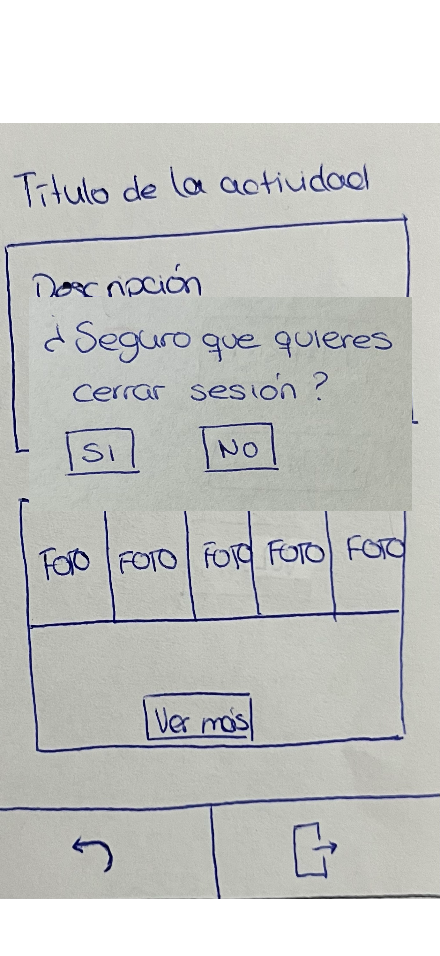 Título de la actividad
Descripción
¿Seguro que quieres
cerrar sesión?
SI NO
FOTO FOTO FOTO FOTO FOTO
Ver más